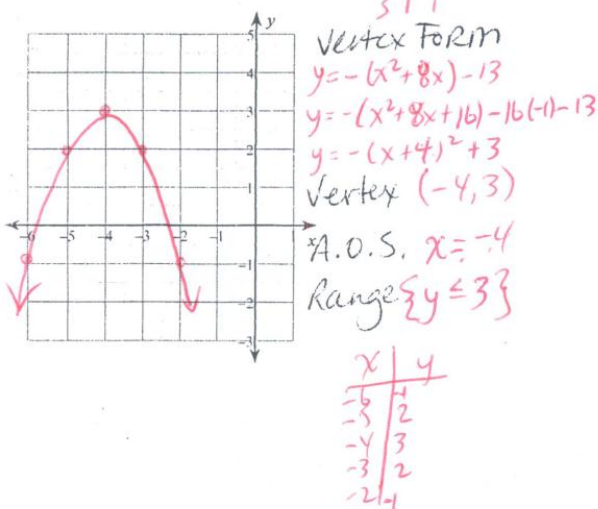 y
5
4
3
2
1
-6 -5 -4 -3 -2 -1
x
-1
-2
-3
Vertex FORM
y=-(x²+8x)-13
y=-(x²+8x+16)-16(-1)-13
y=-(x+4)²+3
Vertex (-4,3)
A.O.S. x=-4
Range {y≤3}
x | y
-6 | -1
-5 | 2
-4 | 3
-3 | 2
-2 | -1